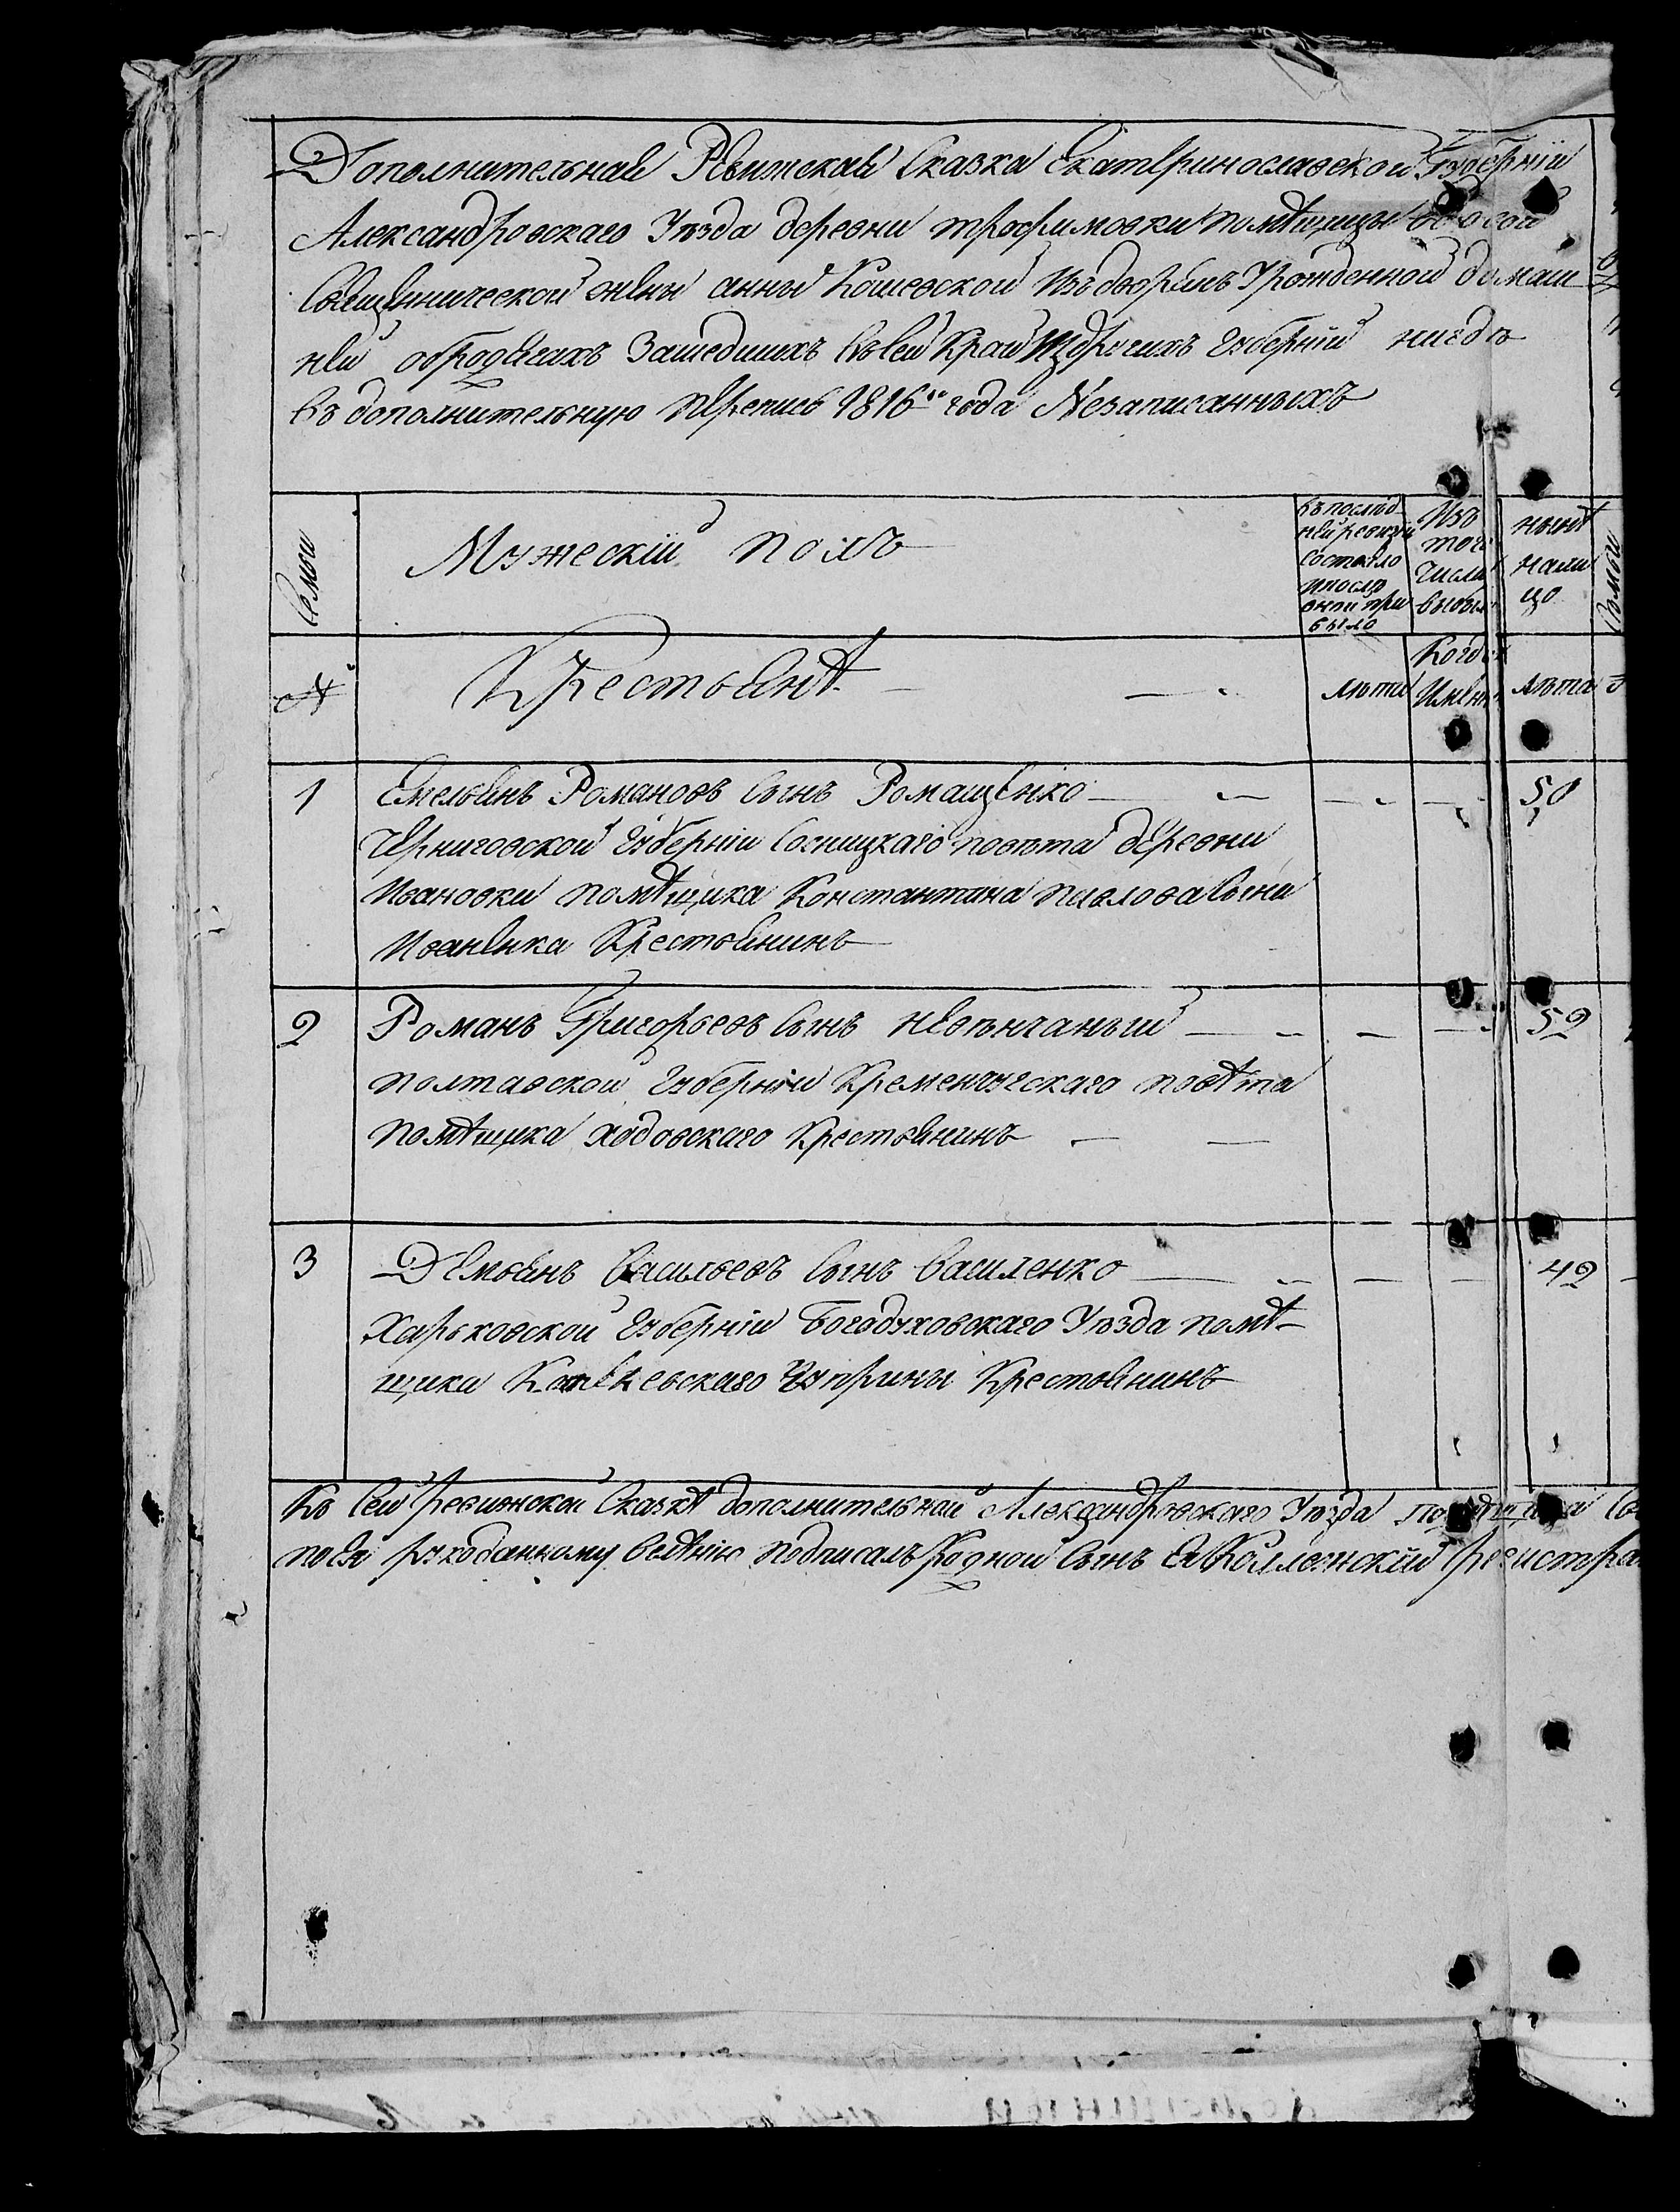 Дополнительная Ревижская Сказка Екатеринославской Губернїи
Александровскаго Уѣзда деревни трофимовки помѣщицы
Священнической жены анны Кошевской Изъ дворянъ Урожденной домаш
ней обродягахъ Зашедшихъ Въ сей Край Из других Губерній нигдѣ
въ дополнительную перепись 1816го года Незаписанныхъ
Семьи
Мужескій полъ
въ послѣд
ней ревизїи
состояло
и послѣ
оной при
было
Изъ
того
числа
выбыло
нынѣ
нали
цо
Семьи
№
Крестьянѣ
лѣта
Когда
Имянно
лѣта
1 Емельянъ Романовъ Сынъ Ромащенко 50
Черниговской Губерніи Сосницкаго повѣта деревни
Ивановки помѣщика Константина павлова Сына
Иваненка Крестьянинъ
2 Романъ Григорьевъ Сынъ невѣнчаный 52
полтавской Губерніи Кременчугскаго повѣта
помѣщика Крестьянинъ
3 Демьянъ Васильевъ Сынъ василенко 42
Харьковской Губерніи Богодуховскаго Уѣзда помѣ-
щика Чуприны Крестьянинъ
Къ Сей Ревижской Сказкѣ дополнительной Александровскаго Уѣзда
по ея рукоданному веленію подписалъ Родной Сынъ Ея Коллежскій регистра